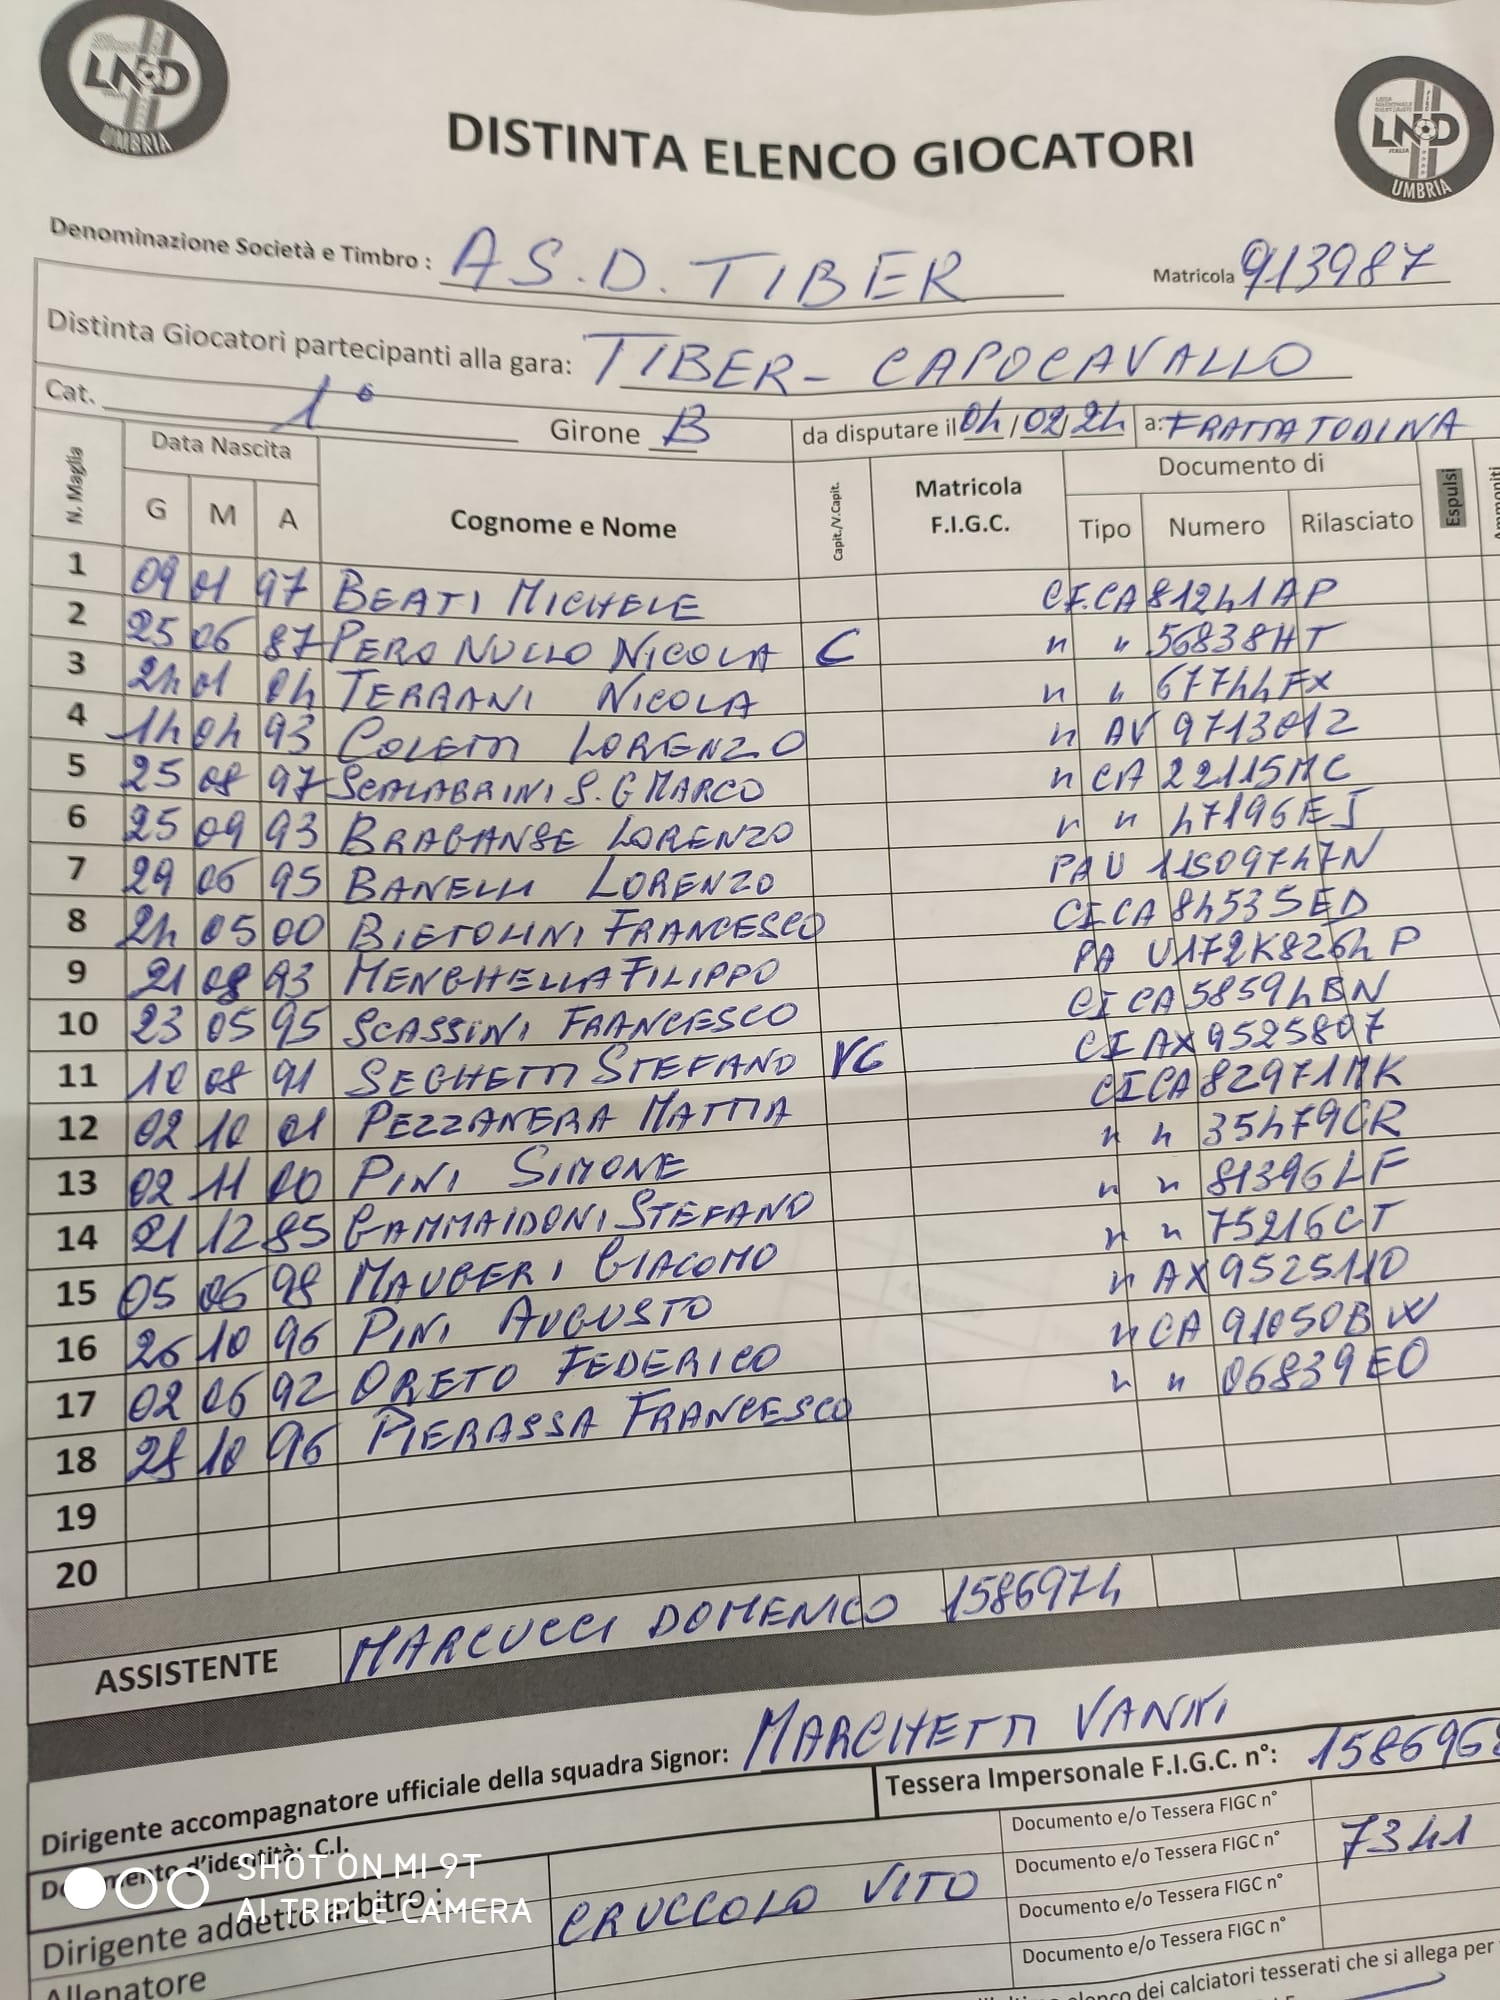 LND
UMBRIA
LND
ITALIA
UMBRIA
DISTINTA ELENCO GIOCATORI
Denominazione Società e Timbro : A.S.D. TIBER Matricola 913987
Distinta Giocatori partecipanti alla gara: TIBER - CAPOCAVALLO
Cat. 1ª Girone B da disputare il 04/02/24 a: FRATTA TODINA
N. Maglia Data Nascita Cognome e Nome Capit./V.Capit. Matricola F.I.G.C. Documento di Espulsi Ammoniti
G M A Tipo Numero Rilasciato
1 09 01 97 BEATI MICHELE C.I. CA 81241AP
2 25 06 87 PERO NULLO NICOLA C " " 56838HT
3 24 01 04 TERRANI NICOLA " " 67744FX
4 14 04 93 COLETTI LORENZO " AV 9713012
5 25 08 97 SCALABRINI S. G MARCO " CA 22115MC
6 25 09 93 BRAGANSE LORENZO " " 47196EJ
7 29 06 95 BANELLI LORENZO PA U 11S09747N
8 24 05 00 BIETOLINI FRANCESCO CI CA 84535ED
9 21 08 93 MENGHELLA FILIPPO PA U172K8264P
10 23 05 95 SCASSINI FRANCESCO CI CA 58594BN
11 10 08 91 SEGHETTI STEFANO VC CI AX 9525807
12 02 10 01 PEZZANERA MATTIA CI CA 82971MK
13 02 11 00 PINI SIMONE " " 35479CR
14 21 12 85 GAMMAIDONI STEFANO " " 81396LF
15 05 06 98 MAUBERI GIACOMO " " 75216CT
16 26 10 96 PINI AUGUSTO " AX 9525110
17 02 06 92 ORETO FEDERICO " CA 91050BW
18 28 10 96 PIERASSA FRANCESCO " " 06839EO
19
20
ASSISTENTE MARCUCCI DOMENICO 1586974
Dirigente accompagnatore ufficiale della squadra Signor: MARCHETTI VANNI
Tessera Impersonale F.I.G.C. n°: 1586968
Documento d'identità: C.I.
Documento e/o Tessera FIGC n°
Dirigente addetto arbitro : CRUCCOLO VITO Documento e/o Tessera FIGC n° 7341
Allenatore Documento e/o Tessera FIGC n°
Documento e/o Tessera FIGC n°
elenco dei calciatori tesserati che si allega per
SHOT ON MI 9T
AI TRIPLE CAMERA